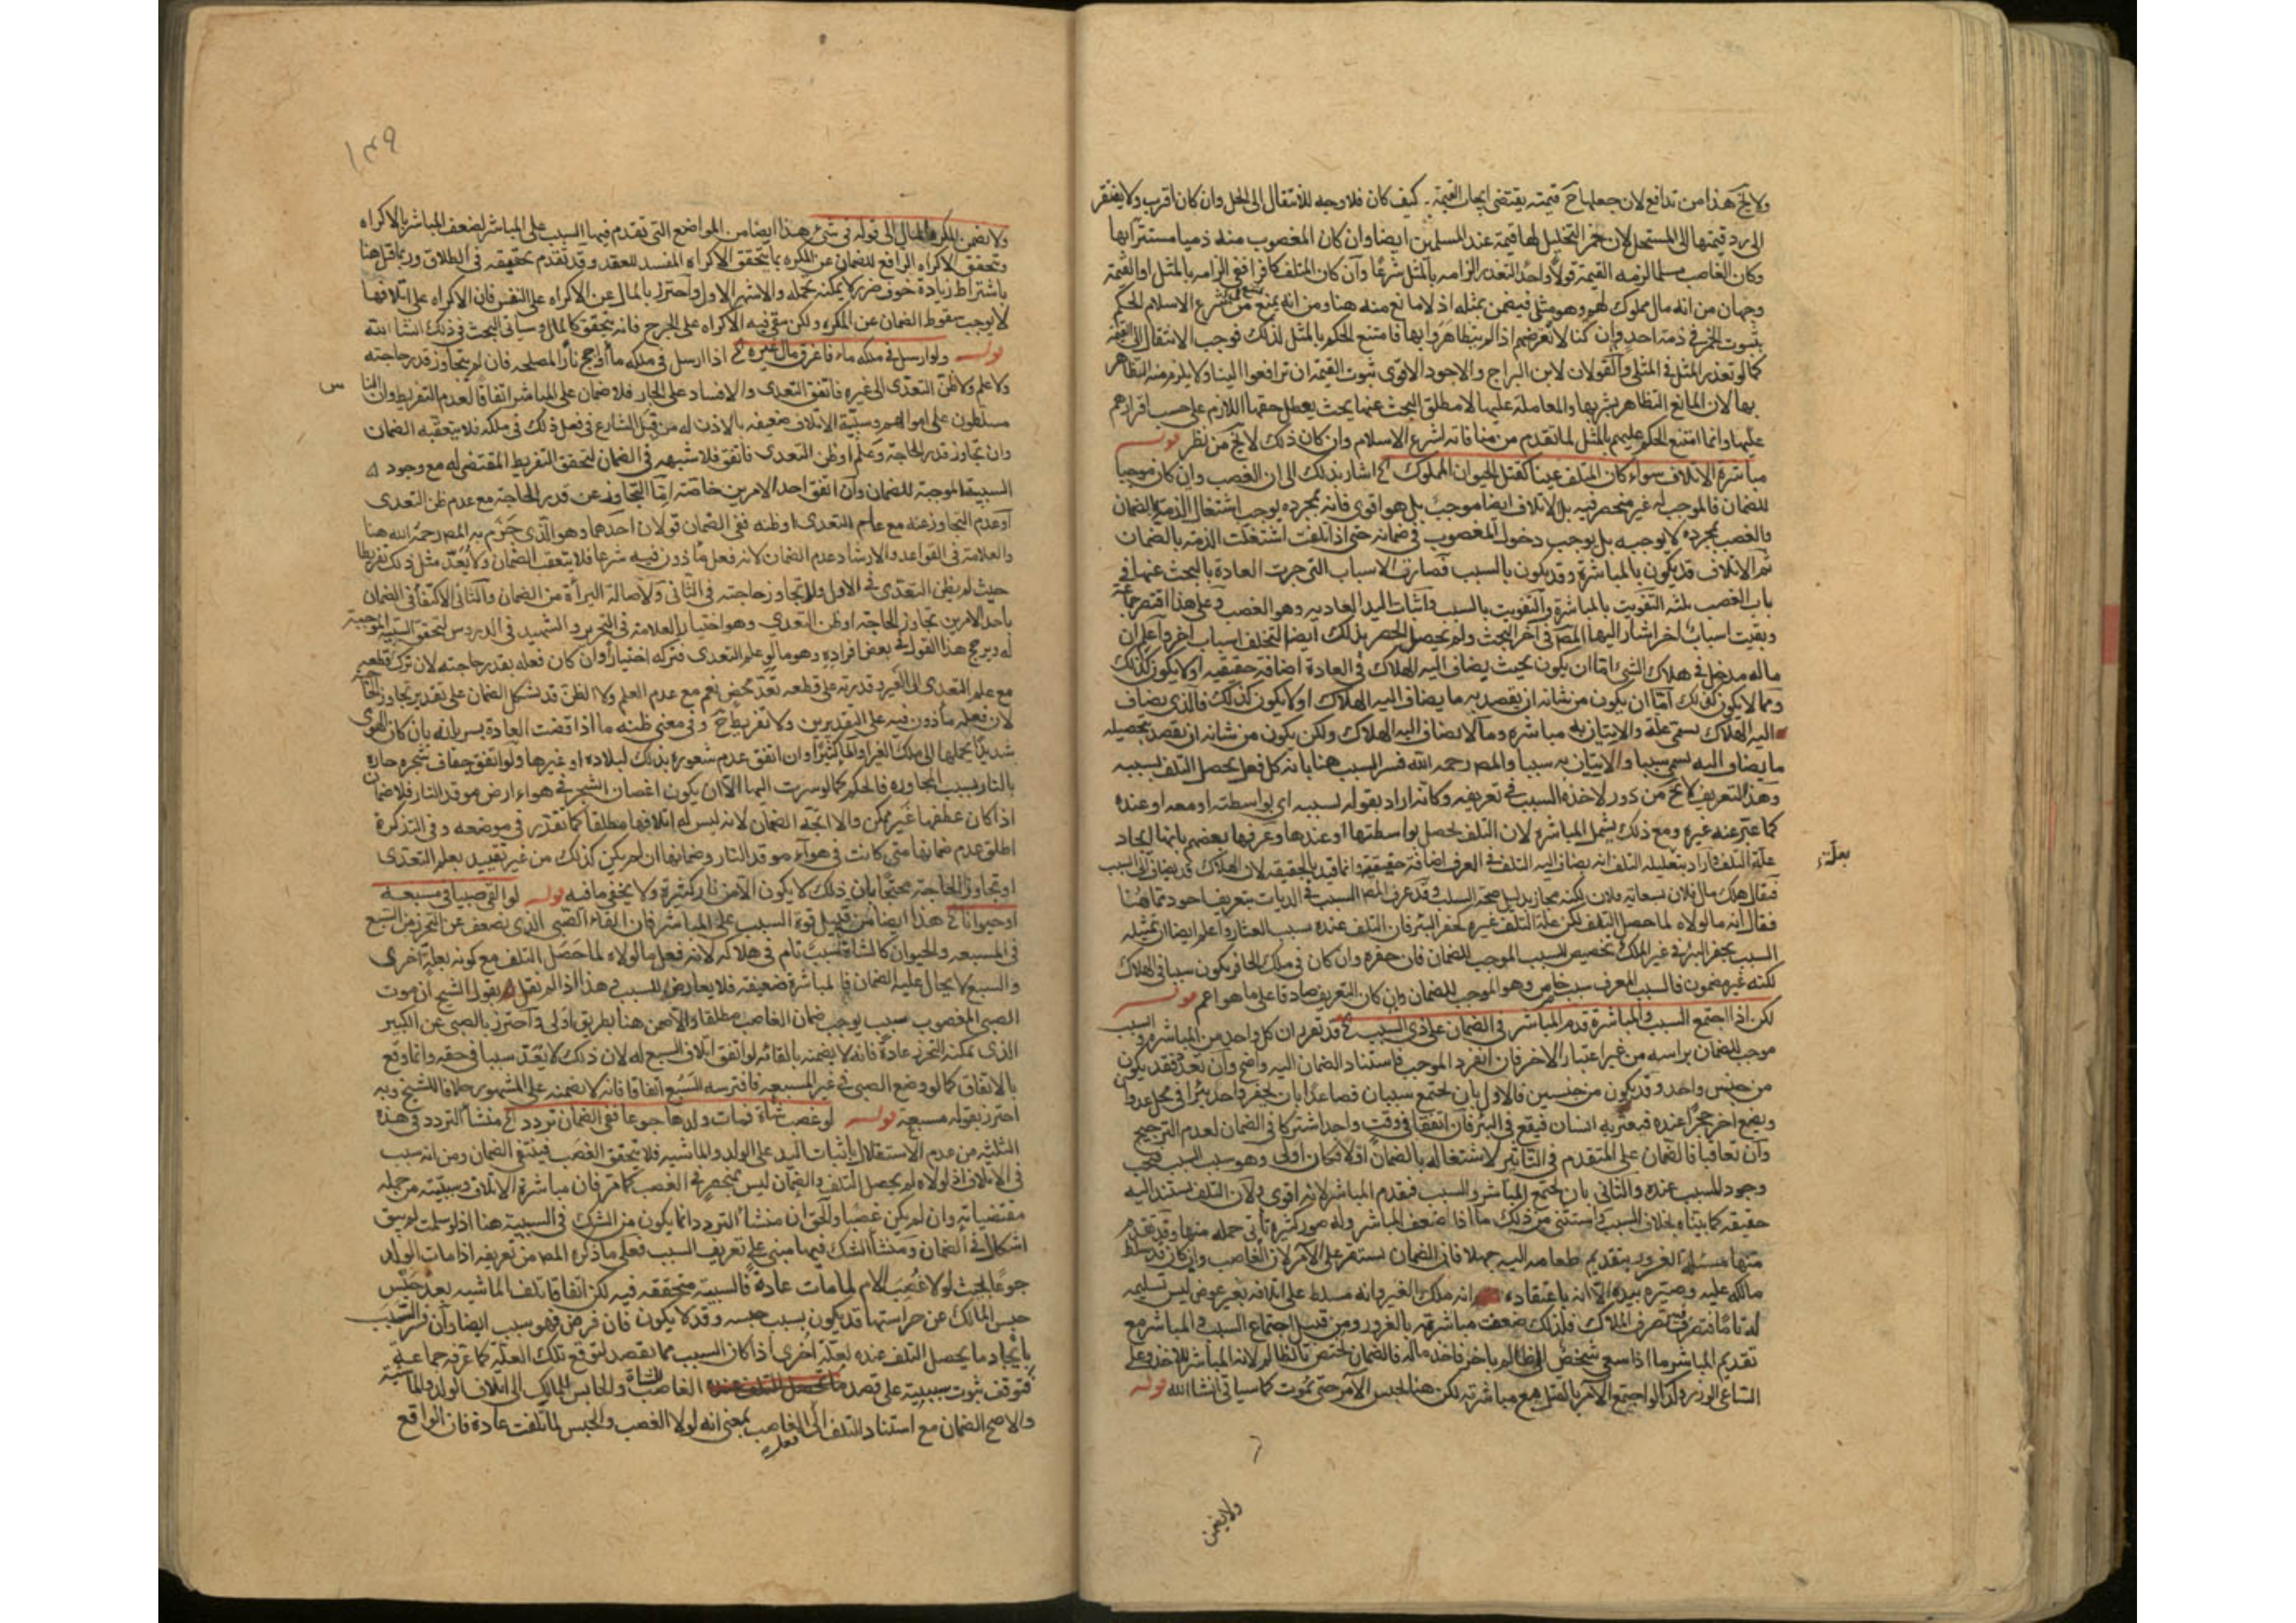 ولا يخ هذا من تدافع لان جعلها ح قيمته يقتضى ايجاب القيمة كيف كان فلا وجه للانتقال الى الخل وان كان اقرب ولا يفتقر
الى رد قيمتها الى المستحل لان خمر التخليل لها قيمة عند المسلمين ايضا وان كان المغصوب منه ذميا مستترا بها
وكان الغاصب مسلما لزمه القيمة قولا واحدا لتعذر الزامه بالمثل شرعا وان كان المتلف كافرا ففى الزامه بالمثل او القيمة
وجهان من انه مال مملوك لهم وهو مثلى فيضمن بمثله اذ لا مانع منه هنا ومن انه يمنع شرع الاسلام الحكم
بثبوت الخمر فى ذمة احد وان كنا لا نعرضهم اذا لم يتظاهروا بها فامتنع الحكم بالمثل لذلك فوجب الانتقال الى القيمة
كما لو تعذر المثل فى المثلى والقولان لابن البراج والاجود الاقوى ثبوت القيمة ان ترافعوا الينا ولا يلزم منه التظاهر
بها لان المانع التظاهر بشربها والمعاملة عليها لا مطلق البحث عنها بحيث يعطل حقها اللازم على حسب اقرارهم
عليها وانما امتنع الحكم عليهم بالمثل لما تقدم من منافاته لشرع الاسلام وان كان ذلك لا يخ من نظر قوله
مباشرة الاتلاف سواء كان المتلف عينا كقتل الحيوان المملوك الخ اشار بذلك الى ان الغصب وان كان موجبا
للضمان فالموجب له غير منحصر فيه بل الاتلاف ايضا موجب بل هو اقوى فانه بمجرده يوجب اشتغال الذمة بالضمان
والغصب بمجرده لا يوجبه بل يوجب دخول المغصوب فى ضمانه حتى اذا تلفت اشتغلت الذمة بالضمان
ثم الاتلاف قد يكون بالمباشرة وقد يكون بالسبب فصارت الاسباب التى جرت العادة بالبحث عنها فى
باب الغصب ثلثه التفويت بالمباشرة والتفويت بالسبب واثبات اليد العاديه وهو الغصب وعلى هذا اقتصر جماعة
وبقيت اسباب اخر اشار اليها المص فى آخر البحث ولم يحصل الحصر بذلك ايضا لتخلف اسباب اخر واعلم ان
ما له مدخل فى هلاك الشئ اما ان يكون بحيث يضاف اليه الهلاك فى العادة اضافة حقيقيه او لا يكون كذلك
وما لا يكون كذلك اما ان يكون من شانه ان يقصد به ما يضاف اليه الهلاك او لا يكون كذلك فالذى يضاف
اليه الهلاك يسمى علة والاتيان به مباشرة وما لا يضاف اليه الهلاك ولكن يكون من شانه ان يقصد بتحصيله
ما يضاف اليه يسمى سببا والاتيان به سببا والمص رحمه الله فسر السبب هنا بانه كل فعل يحصل التلف بسببه
وهذا التعريف لا يخ من دور لاخذه السبب فى تعريفه وكانه اراد بقوله بسببه اى بواسطته او معه او عنده
كما عبر عنه غيره ومع ذلك يشمل المباشرة لان التلف يحصل بواسطتها او عندها وعرفها بعضهم بانها ايجاد
علة التلف فاراد بتعليله التلف انه يضاف اليه التلف فى العرف اضافة حقيقة وانما قيد بالحقيقه لان الهلاك قد يضاف الى السبب
فيقال هلك مال فلان بسعاية فلان لكنه مجاز بدليل صحة السلب وقد عرف المص السبب فى الديات بتعريف اجود مما هنا
فقال انه ما لولاه لما حصل التلف لكن علة التلف غيره كحفر البئر فان التلف عنده بسبب العثار واعلم ايضا ان تمثيله
السبب بحفر البئر فى غير الملك تخصيص للسبب الموجب للضمان فان حفره وان كان فى ملك الحافر يكون سببا فى الهلاك
لكنه غير مضمون فالسبب المعرف سبب خاص وهو الموجب للضمان وان كان التعريف صادقا على ما هو اعم قوله
لكن اذا اجتمع السبب والمباشرة قدم المباشر فى الضمان على ذى السبب الخ قد تقرر ان كل واحد من المباشرة والسبب
موجب للضمان براسه من غير اعتبار الاخر فان انفرد الموجب فاستناد الضمان اليه واضح وان تعدد فقد يكون
من جنس واحد وقد يكون من جنسين فالاول بان يجتمع سببان فصاعدا بان يحفر واحد بئرا فى محل عدوانا
ويضع اخر حجرا عنده فيعثر به انسان فيقع فى البئر فان اتفقا فى وقت واحد اشتركا فى الضمان لعدم الترجيح
وان تعاقبا فالضمان على المتقدم فى التاثير لاشتغاله بالضمان اولا فكان اولى وهو سبب السبب فيجب
وجود المسبب عنده والثانى بان يجتمع المباشر والسبب فيقدم المباشر لانه اقوى ولان التلف يستند اليه
حقيقه كما بيناه بخلاف السبب واستثنى من ذلك ما اذا ضعف المباشر وله صور كثيرة تاتى جمله منها وقد تقدم
منها مسئلة الغرور بتقديم طعامه اليه جهلا فان الضمان يستقر على الآمر لان الغاصب وان كان قد سلط
مالكه عليه وصيره بيده الا انه باعتقاده انه ملك الغير وانه مسلط على اتلافه بغير عوض ليس تسليمه
له تاما فتصرف فيه تصرف الملاك فلذلك ضعفت مباشرته بالغرور ومن قبيل اجتماع السبب والمباشر مع
تقديم المباشر ما اذا سعى شخص الى ظالم باخر فاخذ ماله فالضمان يختص بالظالم لانه المباشر للاخذ وعلى
الساعى الوزر وكذا لو اجتمع الآمر بالقتل مع مباشرته لكن هنا يحبس الآمر حتى يموت كما سياتى انشاالله قوله
بعلة
ولا يضمن
١٣٩
ولا يضمن المكره المال الى قوله فى شئ هذا ايضا من المواضع التى تقدم فيها السبب على المباشر لضعف المباشر بالاكراه
وتحقق الاكراه الرافع للضمان عن المكره بما يتحقق الاكراه المفسد للعقد وقد تقدم تحقيقه فى الطلاق وربما قيل هنا
باشتراط زيادة خوف ضرر لا يمكنه تحمله والاشهر الاول واحترز بالمال عن الاكراه على النفس فان الاكراه على اتلافها
لا يوجب سقوط الضمان عن المكره ولكن بقى فيه الاكراه على الجرح فانه يتحقق كالمال وسياتى البحث فى ذلك انشا الله
قوله ولو ارسل فى ملكه ماء فاغرق مال غيره الخ اذا ارسل فى ملكه ماء او اجج نارا لمصلحه فان لم يتجاوز قدر حاجته
ولا علم ولا ظن التعدى الى غيره فاتفق التعدى والافساد على الجار فلا ضمان على المباشر اتفاقا لعدم التفريط وان الناس
مسلطون على اموالهم وسببية الاتلاف ضعيفه بالاذن له من قبل الشارع فى فعل ذلك فى ملكه فلا يتعقبه الضمان
وان تجاوز قدر الحاجة وعلم او ظن التعدى فاتفق فلا شبهه فى الضمان لتحقق التفريط المقتضى له مع وجود
السببية الموجبة للضمان وان اتفق احد الامرين خاصة اما التجاوز عن قدر الحاجة مع عدم ظن التعدى
او عدم التجاوز عنه مع علم التعدى او ظنه ففى الضمان قولان احدهما وهو الذى جزم به المص رحمه الله هنا
والعلامة فى القواعد والارشاد عدم الضمان لانه فعل ماذون فيه شرعا فلا يتعقبه الضمان ولا يعد مثل ذلك تفريطا
حيث لم يظن التعدى فى الاول ولم يتجاوز حاجته فى الثانى ولاصالة البرأة من الضمان والثانى الاكتفا فى الضمان
باحد الامرين تجاوز الحاجة او ظن التعدى وهو اختيار العلامة فى التحرير والشهيد فى الدروس لتحقق السببية الموجبة
له ويرجح هذا القول فى بعض افراده وهو ما لو علم التعدى فتركه اختيارا وان كان فعله بقدر حاجته لان ترك قطعه
مع علم التعدى الى الغير وقدرته على قطعه تعد محض نعم مع عدم العلم ولا الظن قد يشكل الضمان على تقدير تجاوز الحاجة
لان فعله ماذون فيه على التقديرين ولا تفريط ح وفى معنى ظنه ما اذا قضت العادة بسريانه بان كان الهوى
شديدا يحملها الى ملك الغير او الما كثيرا وان اتفق عدم شعوره بذلك لبلاده او غيرها ولو اتفق جفاف شجره جاره
بالنار بسبب المجاوره فالحكم كما لو سرت اليها الا ان يكون اغصان الشجر فى هواء ارض موقد النار فلا ضمان
اذا كان عطفها غير ممكن والا اتجه الضمان لانه ليس له اتلافها مطلقا كما تقرر فى موضعه وفى التذكرة
اطلق عدم ضمانها متى كانت فى هوآء موقد النار وضمانها ان لم يكن كذلك من غير تقييد بعلم التعدى
او تجاوز الحاجة محتجا بان ذلك لا يكون الا من نار كثيرة ولا يخفى ما فيه قوله لو القى صبيا فى مسبعه
او حيوانا الخ هذا ايضا من قبيل قوة السبب على المباشر فان القاء الصبى الذى يضعف عن التحرز من السبع
فى المسبعه والحيوان كالشاة سبب تام فى هلاكه لانه فعل ما لولاه لما حصل التلف مع كونه بعلة اخرى
والسبع لا يحال عليه الضمان فالمباشرة ضعيفه فلا يعارض السبب هذا اذا لم نقل بقول الشيخ ان موت
الصبى المغصوب بسبب يوجب ضمان الغاصب مطلقا والا ضمن هنا بطريق اولى واحترز بالصبى عن الكبير
الذى يمكنه التحرز عادة فانه لا يضمنه بالقائه لو اتفق اتلاف السبع له لان ذلك لا يعد سببا فى حقه وانما وقع
بالاتفاق كما لو وضع الصبى فى غير المسبعه فافترسه السبع اتفاقا فانه لا يضمنه على المشهور خلافا للشيخ وبه
احترز بقوله مسبعة قوله لو غصب شاة فمات ولدها جوعا ففى الضمان تردد الخ منشأ التردد فى هذه
الثلثه من عدم الاستقلال باثبات اليد على الولد والماشيه فلا يتحقق الغصب فينتفى الضمان ومن انه سبب
فى الاتلاف اذ لولاه لم يحصل التلف والضمان ليس بمنحصر فى الغصب كما مر فان مباشرة الاتلاف وسببيته من جمله
مقتضياته وان لم يكن غصبا والحق ان منشأ التردد انما يكون من الشك فى السببية هنا اذ لو سلمت لم يبق
اشكال فى الضمان ومنشأ الشك فيها مبنى على تعريف السبب فعلى ما ذكره المص من تعريفه اذا مات الولد
جوعا بحيث لولا غصب الام لما مات عادة فالسببية متحققه فيه لكن اتفاقا تلف الماشيه بعد حبس
حبس المالك عن حراستها قد يكون بسبب حبسه وقد لا يكون فان فرض فهو سبب ايضا وان فسر السبب
بايجاد ما يحصل التلف عنده لعلة اخرى اذا كان السبب مما يقصد لتوقع تلك العلة كما عرفه جماعة
فتوقف ثبوت سببيته على قصد الغاصب الشاة والحابس للمالك الى اتلاف الولد والماشية
والاصح الضمان مع استناد التلف الى الغاصب بمعنى انه لولا الغصب والحبس لما تلفت عادة فان الواقع